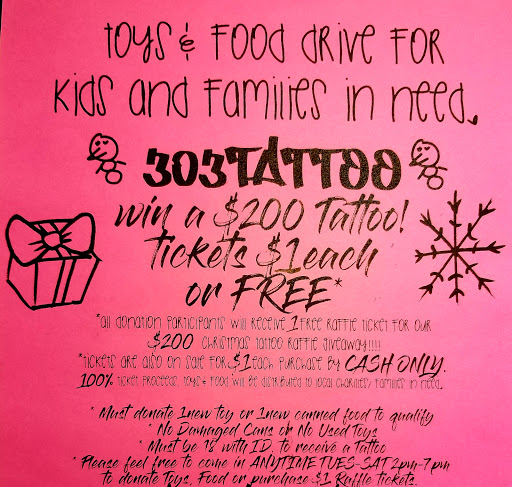 Toys & Food Drive For
Kids and Families in need.
303 TATTOO
win a $200 Tattoo!
tickets $1 each
or FREE*
*all donation participants will receive 1 Free raffle ticket for our
$200 Christmas tattoo raffle giveaway!!!!
*tickets are also on sale for $1 each purchase by CASH ONLY.
100% ticket proceeds, toys & food will be distributed to local charities/families in need.
* Must donate 1 new toy or 1 new canned food to qualify
* No Damaged Cans or No Used Toys
* Must be 18 with I.D. to receive a Tattoo
* Please feel free to come in ANYTIME TUES-SAT 2pm-7pm
to donate Toys, Food or purchase $1 Raffle Tickets.